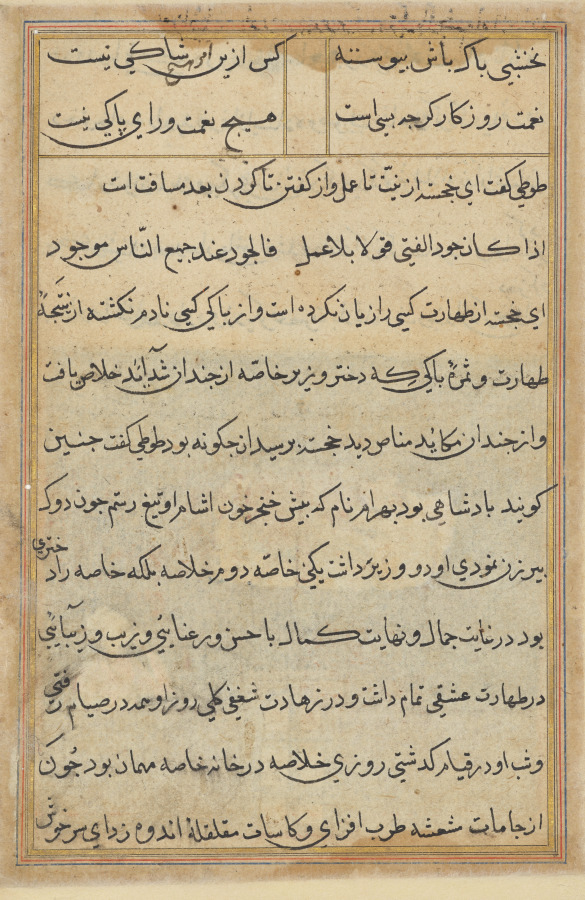 نخشبی پاک باش پیوسته کس ازین امر شاکی نیست
نعمت روزکار کرجه بسی است هیچ نعمت ورای پاکی نیست
طوطی کفت ای خجسته از نیّت تا عمل و از کفتن تا کردن بعد مسافت است
اذا کان جود الفتی قولا بلا عمل فالجود عند جمیع النّاس موجود
ای خجسته از طهارت کسی را زیان نکرده است و از پاکی کسی نادم نکشته از نتیجهٔ
طهارت و ثمرهٔ پاکی که دختر وزیر خاصّه از جندان شدائد خلاص یافت
و از جندان مکائد مناص دید خجسته برسید ان جکونه بود طوطی کفت جنین
کویند بادشاهی بود بهرام نام که بیش خنجر خون اشام او تیغ رستم جون دوک
بیرزن نمودی او دو وزیر داشت یکی خاصّه دوم خلاصه بلکه خاصه را دختری
بود در غایت جمال و نهایت کمال با حسن و رعنایی و زیب و زیبایی
در طهارت عشقی تمام داشت و در زهادت شغفی کلی روز او همه در صیام رفتی
و شب او در قیام کدشتی روزی خلاصه در خانه خاصه مهمان بود جون ک
از جامات مشعشه طرب افزای و کاسات مقلقلهٔ اندوه زدای سرخوش